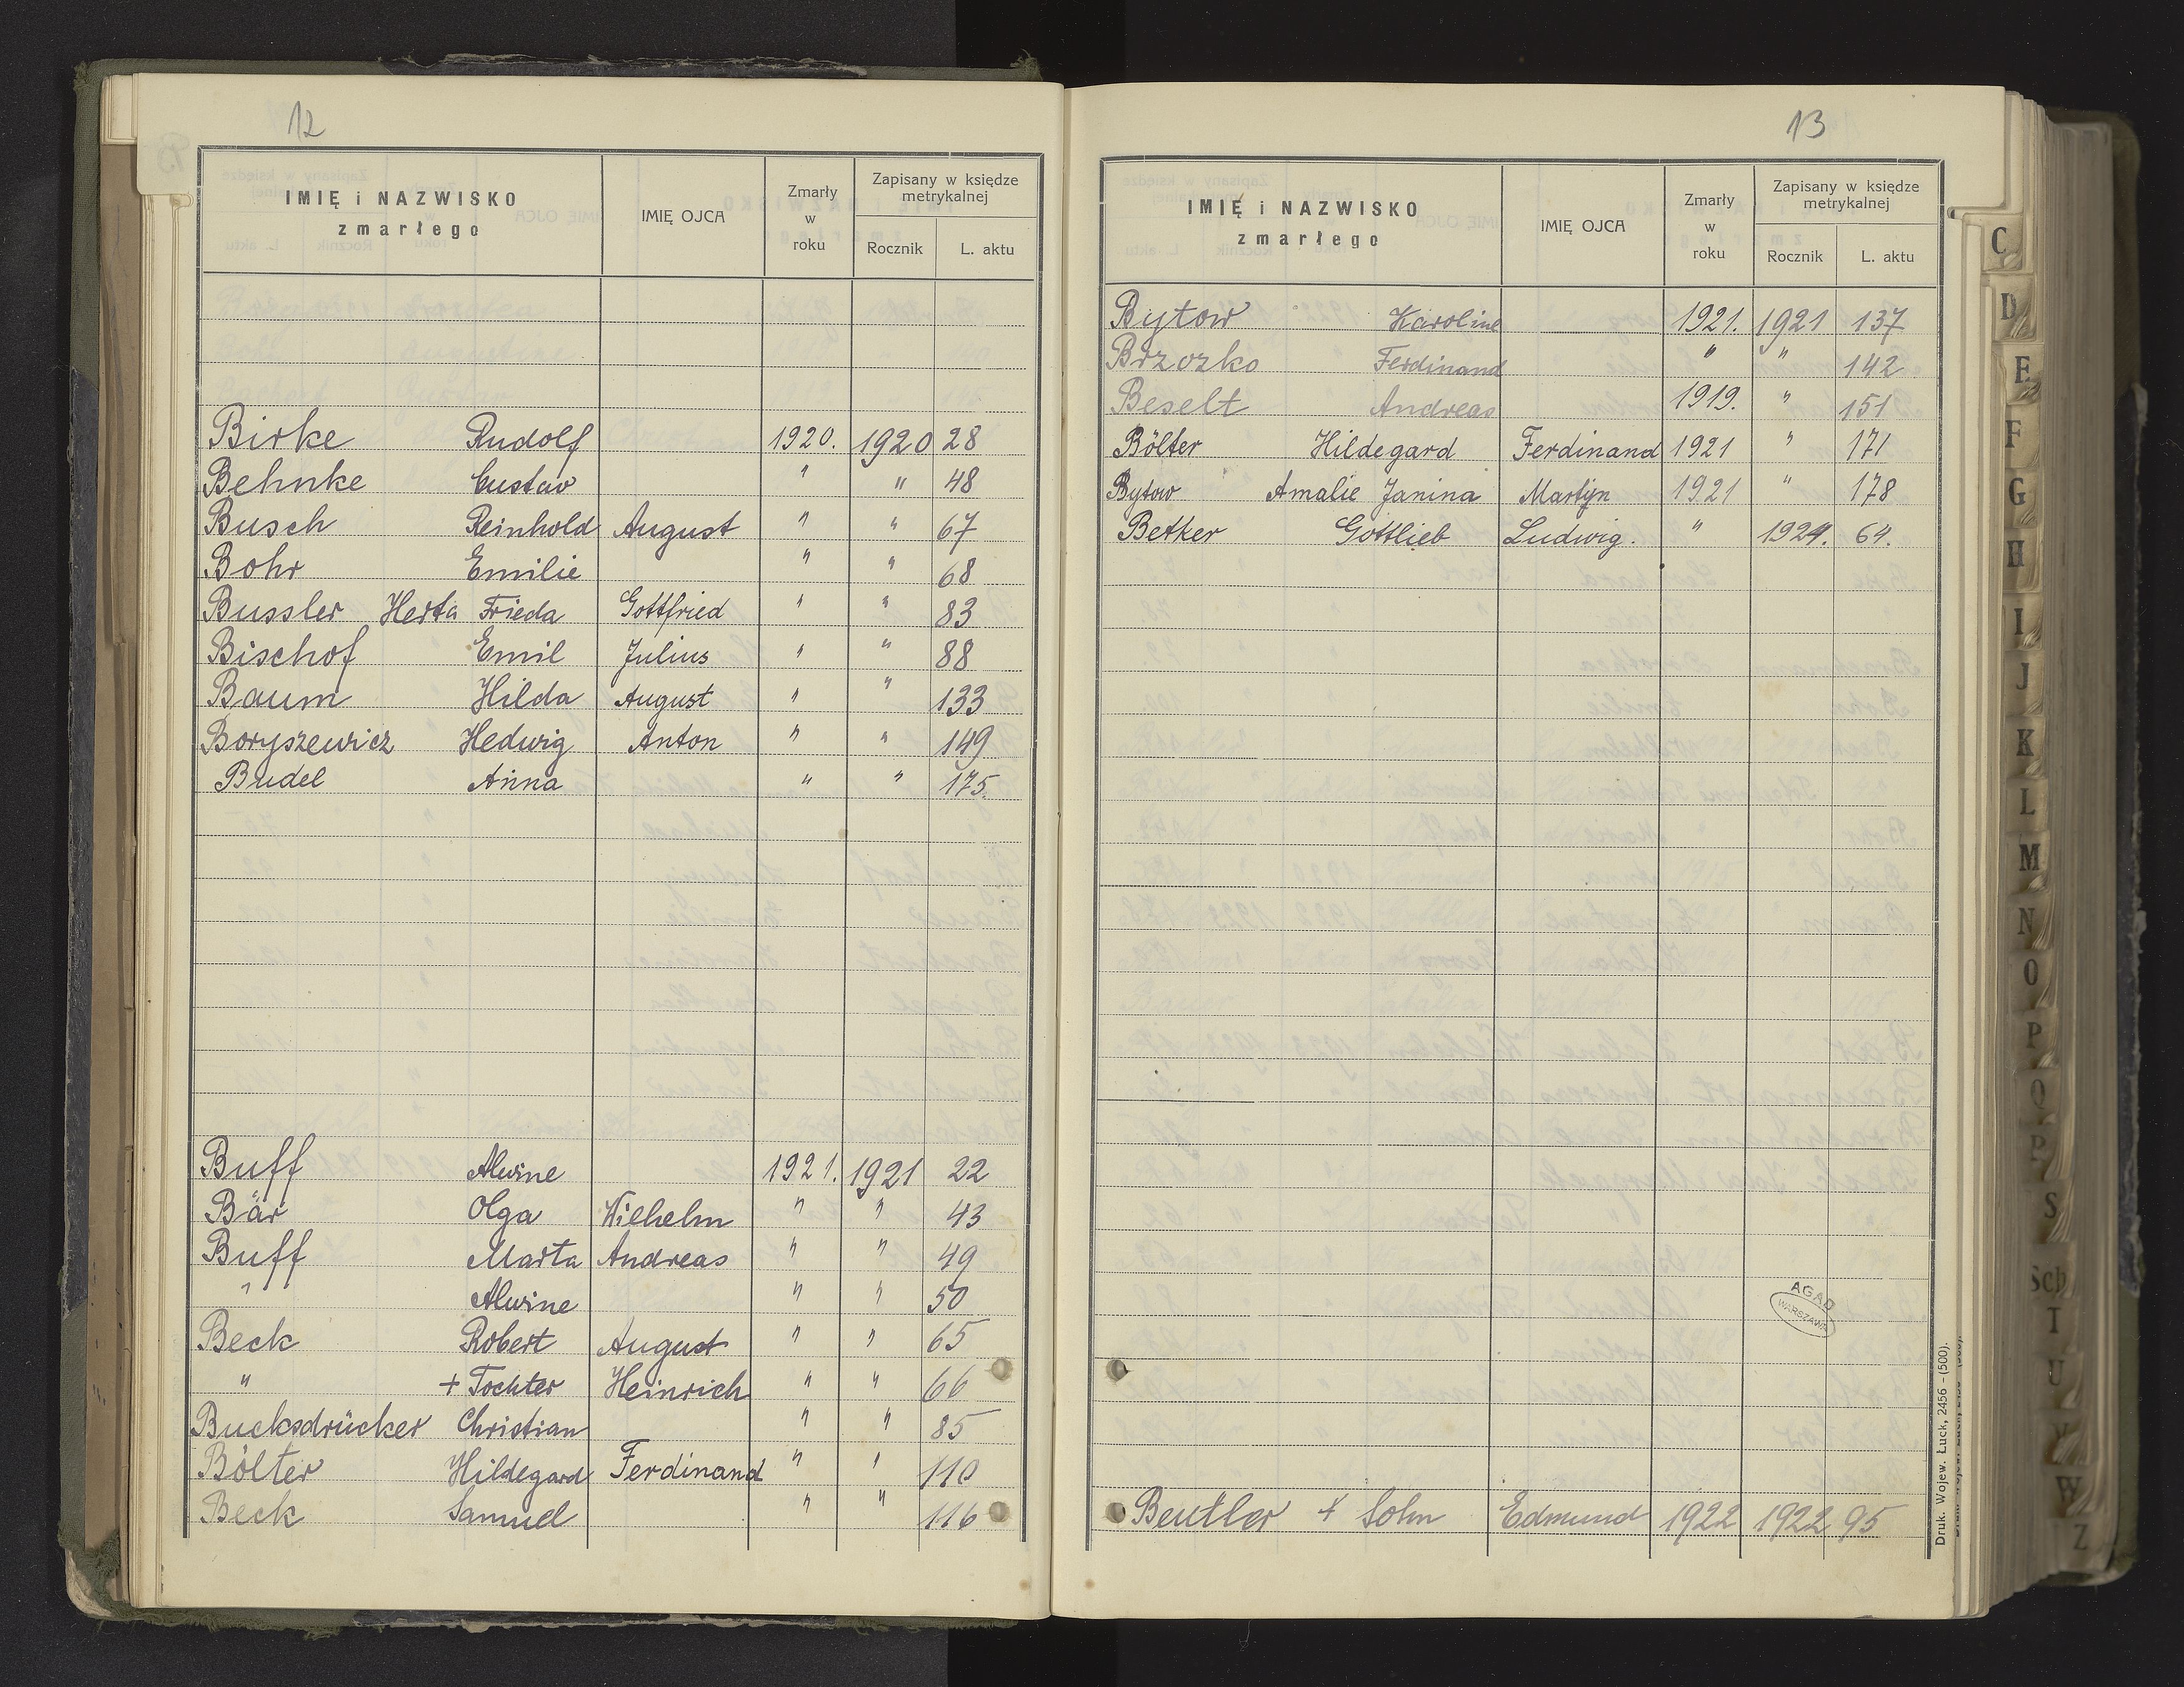 12
IMIĘ i NAZWISKO zmarłego | IMIĘ OJCA | Zmarły w roku | Zapisany w księdze metrykalnej
Rocznik | L. aktu
Birke Rudolf | | 1920. | 1920 | 28
Behnke Gustav | | " | " | 48
Busch Reinhold | August | " | " | 67
Bohr Emilie | | " | " | 68
Bussler Herta Frieda | Gottfried | " | " | 83
Bischof Emil | Julius | " | " | 88
Baum Hilda | August | " | " | 133
Boryszewicz Hedwig | Anton | " | " | 149
Budel Anna | | " | " | 175.
Buff Alwine | | 1921. | 1921 | 22
Bär Olga | Wilhelm | " | " | 43
Buff Marta | Andreas | " | " | 49
" Alwine | | " | " | 50
Beck Robert | August | " | " | 65
" + Tochter | Heinrich | " | " | 66
Bucksdrücker Christian | | " | " | 85
Bölter Hildegard | Ferdinand | " | " | 110
Beck Samuel | | " | " | 116
13
IMIĘ i NAZWISKO zmarłego | IMIĘ OJCA | Zmarły w roku | Zapisany w księdze metrykalnej
Rocznik | L. aktu
Bytow Karoline | | 1921. | 1921 | 137
Brzozko Ferdinand | | " | " | 142
Beselt Andreas | | 1919. | " | 151
Bölter Hildegard | Ferdinand | 1921 | " | 171
Bytow Amalie Janina | Martijn | 1921 | " | 178
Betker Gottlieb | Ludwig. | " | 1924. | 64.
Beutler + Sohn | Edmund | 1922 | 1922 | 95
AGAD
WARSZAWA
Druk. Wojew. Łuck, 2456 - (500).
C
D
E
F
G
H
I
J
K
L
M
N
O
P
Q
R
S
Sch
T
U
V
W
Z